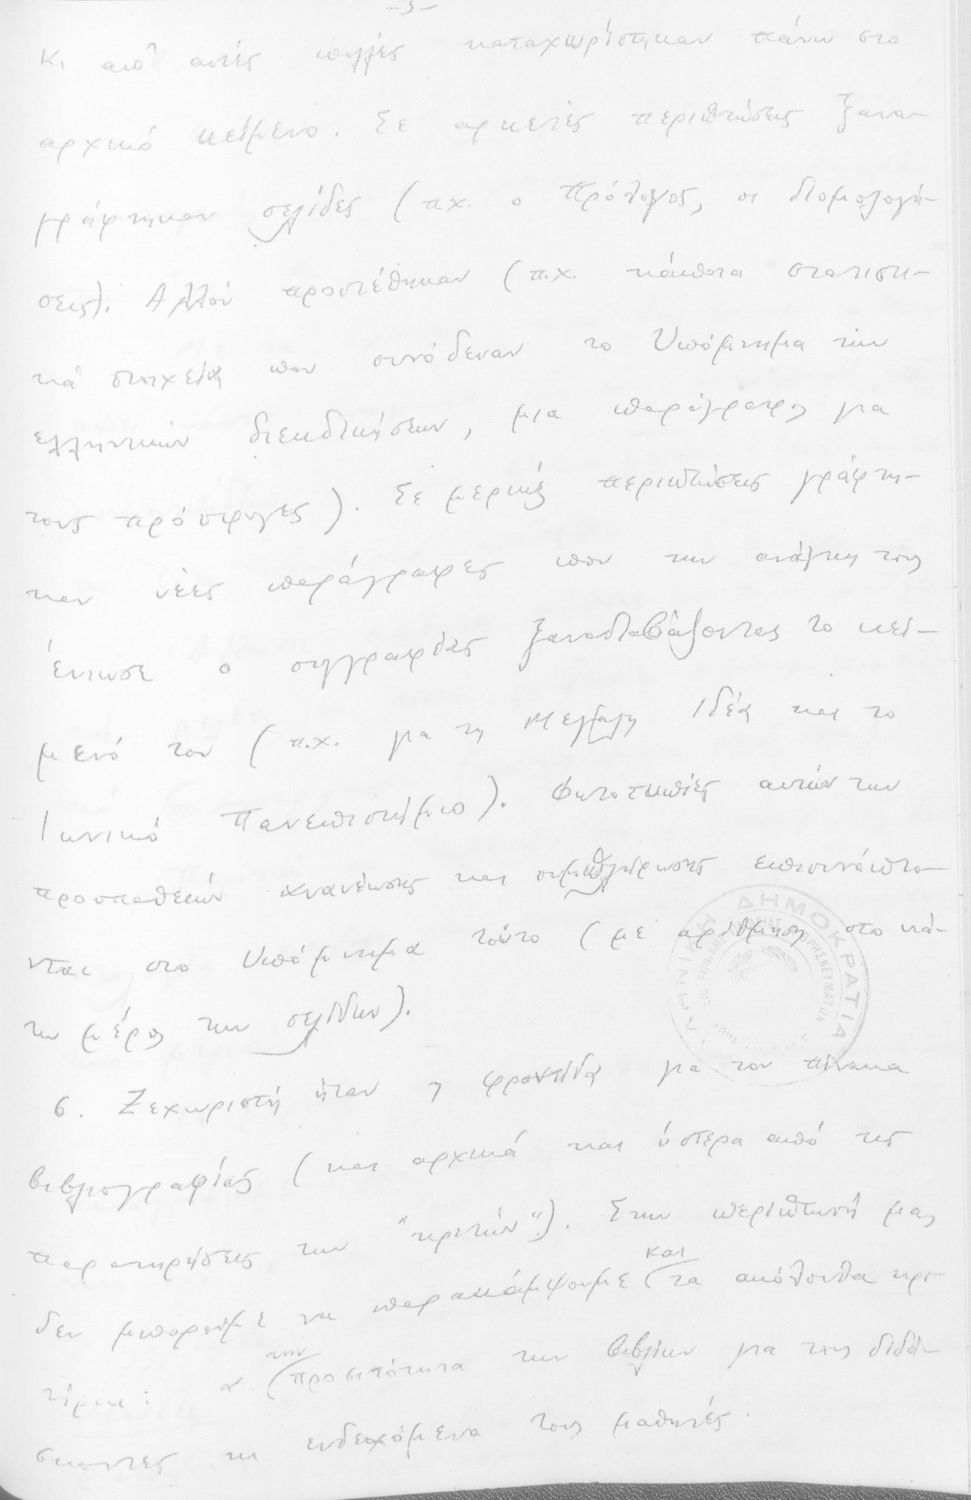 -3-
Κι απ' αυτές πολλές καταχωρίστηκαν πάνω στο
αρχικό κείμενο. Σε αρκετές περιπτώσεις ξανα-
γράφτηκαν σελίδες (π.χ. ο Πρόλογος, οι διομολογή-
σεις). Αλλού προστέθηκαν (π.χ. κάποια στατιστι-
κά στοιχεία που συνόδευαν το Υπόμνημα των
ελληνικών διεκδικήσεων, μια παράγραφος για
τους πρόσφυγες). Σε μερικές περιπτώσεις γράφτη-
καν νέες παράγραφες που την ανάγκη τους
ένιωσε ο συγγραφέας ξαναδιαβάζοντας το κεί-
μενό του (π.χ. για τη Μεγάλη Ιδέα και το
Ιωνικό Πανεπιστήμιο). Φωτοτυπίες αυτών των
προσπαθειών ανανέωσης και συμπλήρωσης επισυνάπτο-
νται στο Υπόμνημα τούτο (με αρίθμηση στο κά-
τω μέρος των σελίδων).
6. Ξεχωριστή ήταν η φροντίδα για τον πίνακα
βιβλιογραφίας (και αρχικά και ύστερα από τις
παρατηρήσεις των "κριτών".). Στην περίπτωσή μας
δεν μπορούμε να παρακάμψουμε και τα ακόλουθα κρι-
τήρια: α. την προσιτότητα των βιβλίων για τους διδά-
σκοντες κι ενδεχόμενα τους μαθητές.
ΕΛΛΗΝΙΚΗ ΔΗΜΟΚΡΑΤΙΑ